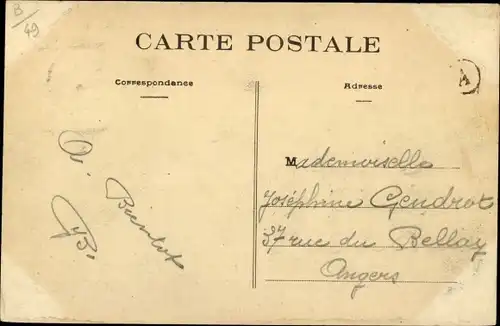 B/49
CARTE POSTALE
Correspondance
Adresse
A
A Bientot
B.
Mademoiselle
Joséphine Gendrot
37 rue du Bellay
Angers